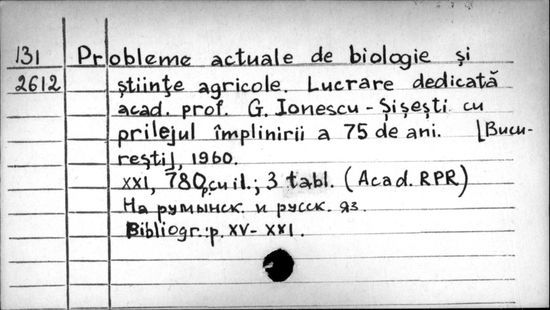 131 Probleme actuale de biologie și
2612 științe agricole. Lucrare dedicată
acad. prof. G. Ionescu-Șișești cu
prilejul împlinirii a 75 de ani. [Bucu-
rești], 1960.
XXI, 780p., cu il.; 3 tabl. (Acad. RPR)
На румынск. и русск. яз.
Bibliogr.: p. XV-XXI.